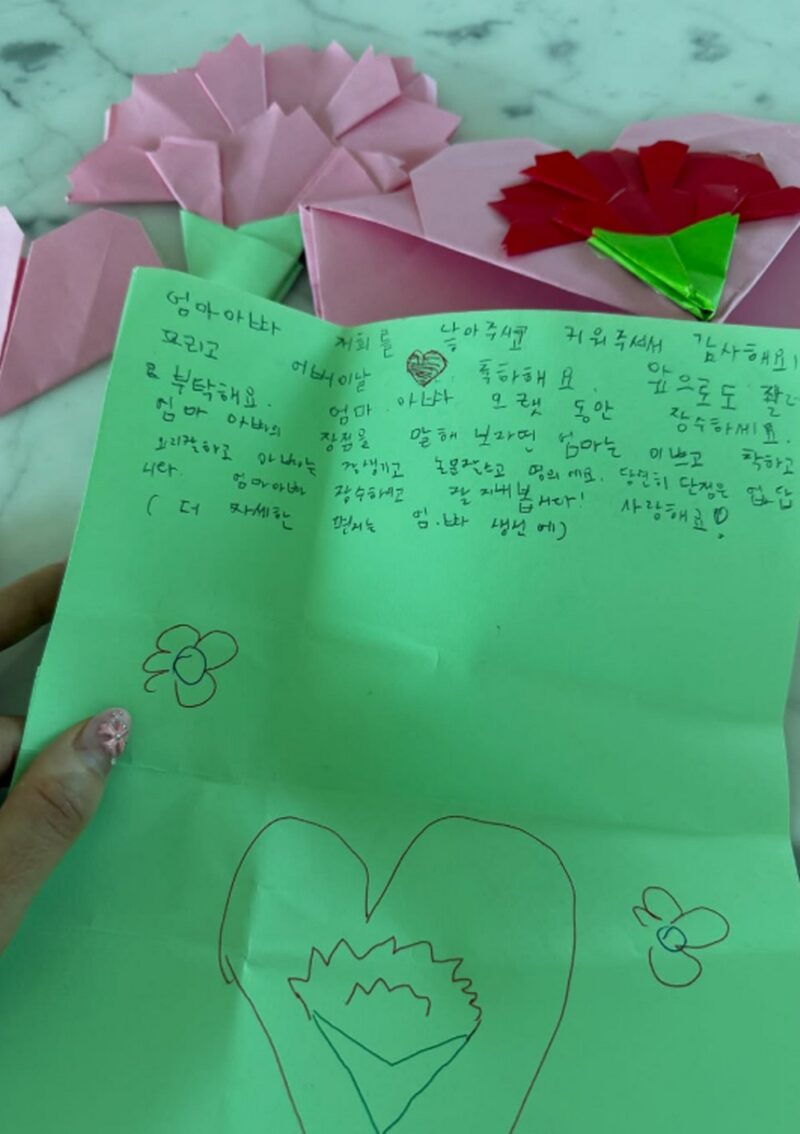 엄마아빠 저희를 낳아주시고 키워주셔서 감사해요!
그리고 어버이날 축하해요. 앞으로도 잘
부탁해요. 엄마 아빠 오랫 동안 장수하세요.
엄마 아빠의 장점을 말해 보라면 엄마는 이쁘고 착하고
요리잘하고 아빠는 잘생기고 논문잘쓰고 명의에요. 당연히 단점은 없답
니다. 엄마아빠 장수하고 잘 지내봅시다! 사랑해요!
( 더 자세한 편지는 엄.빠 생신 에)